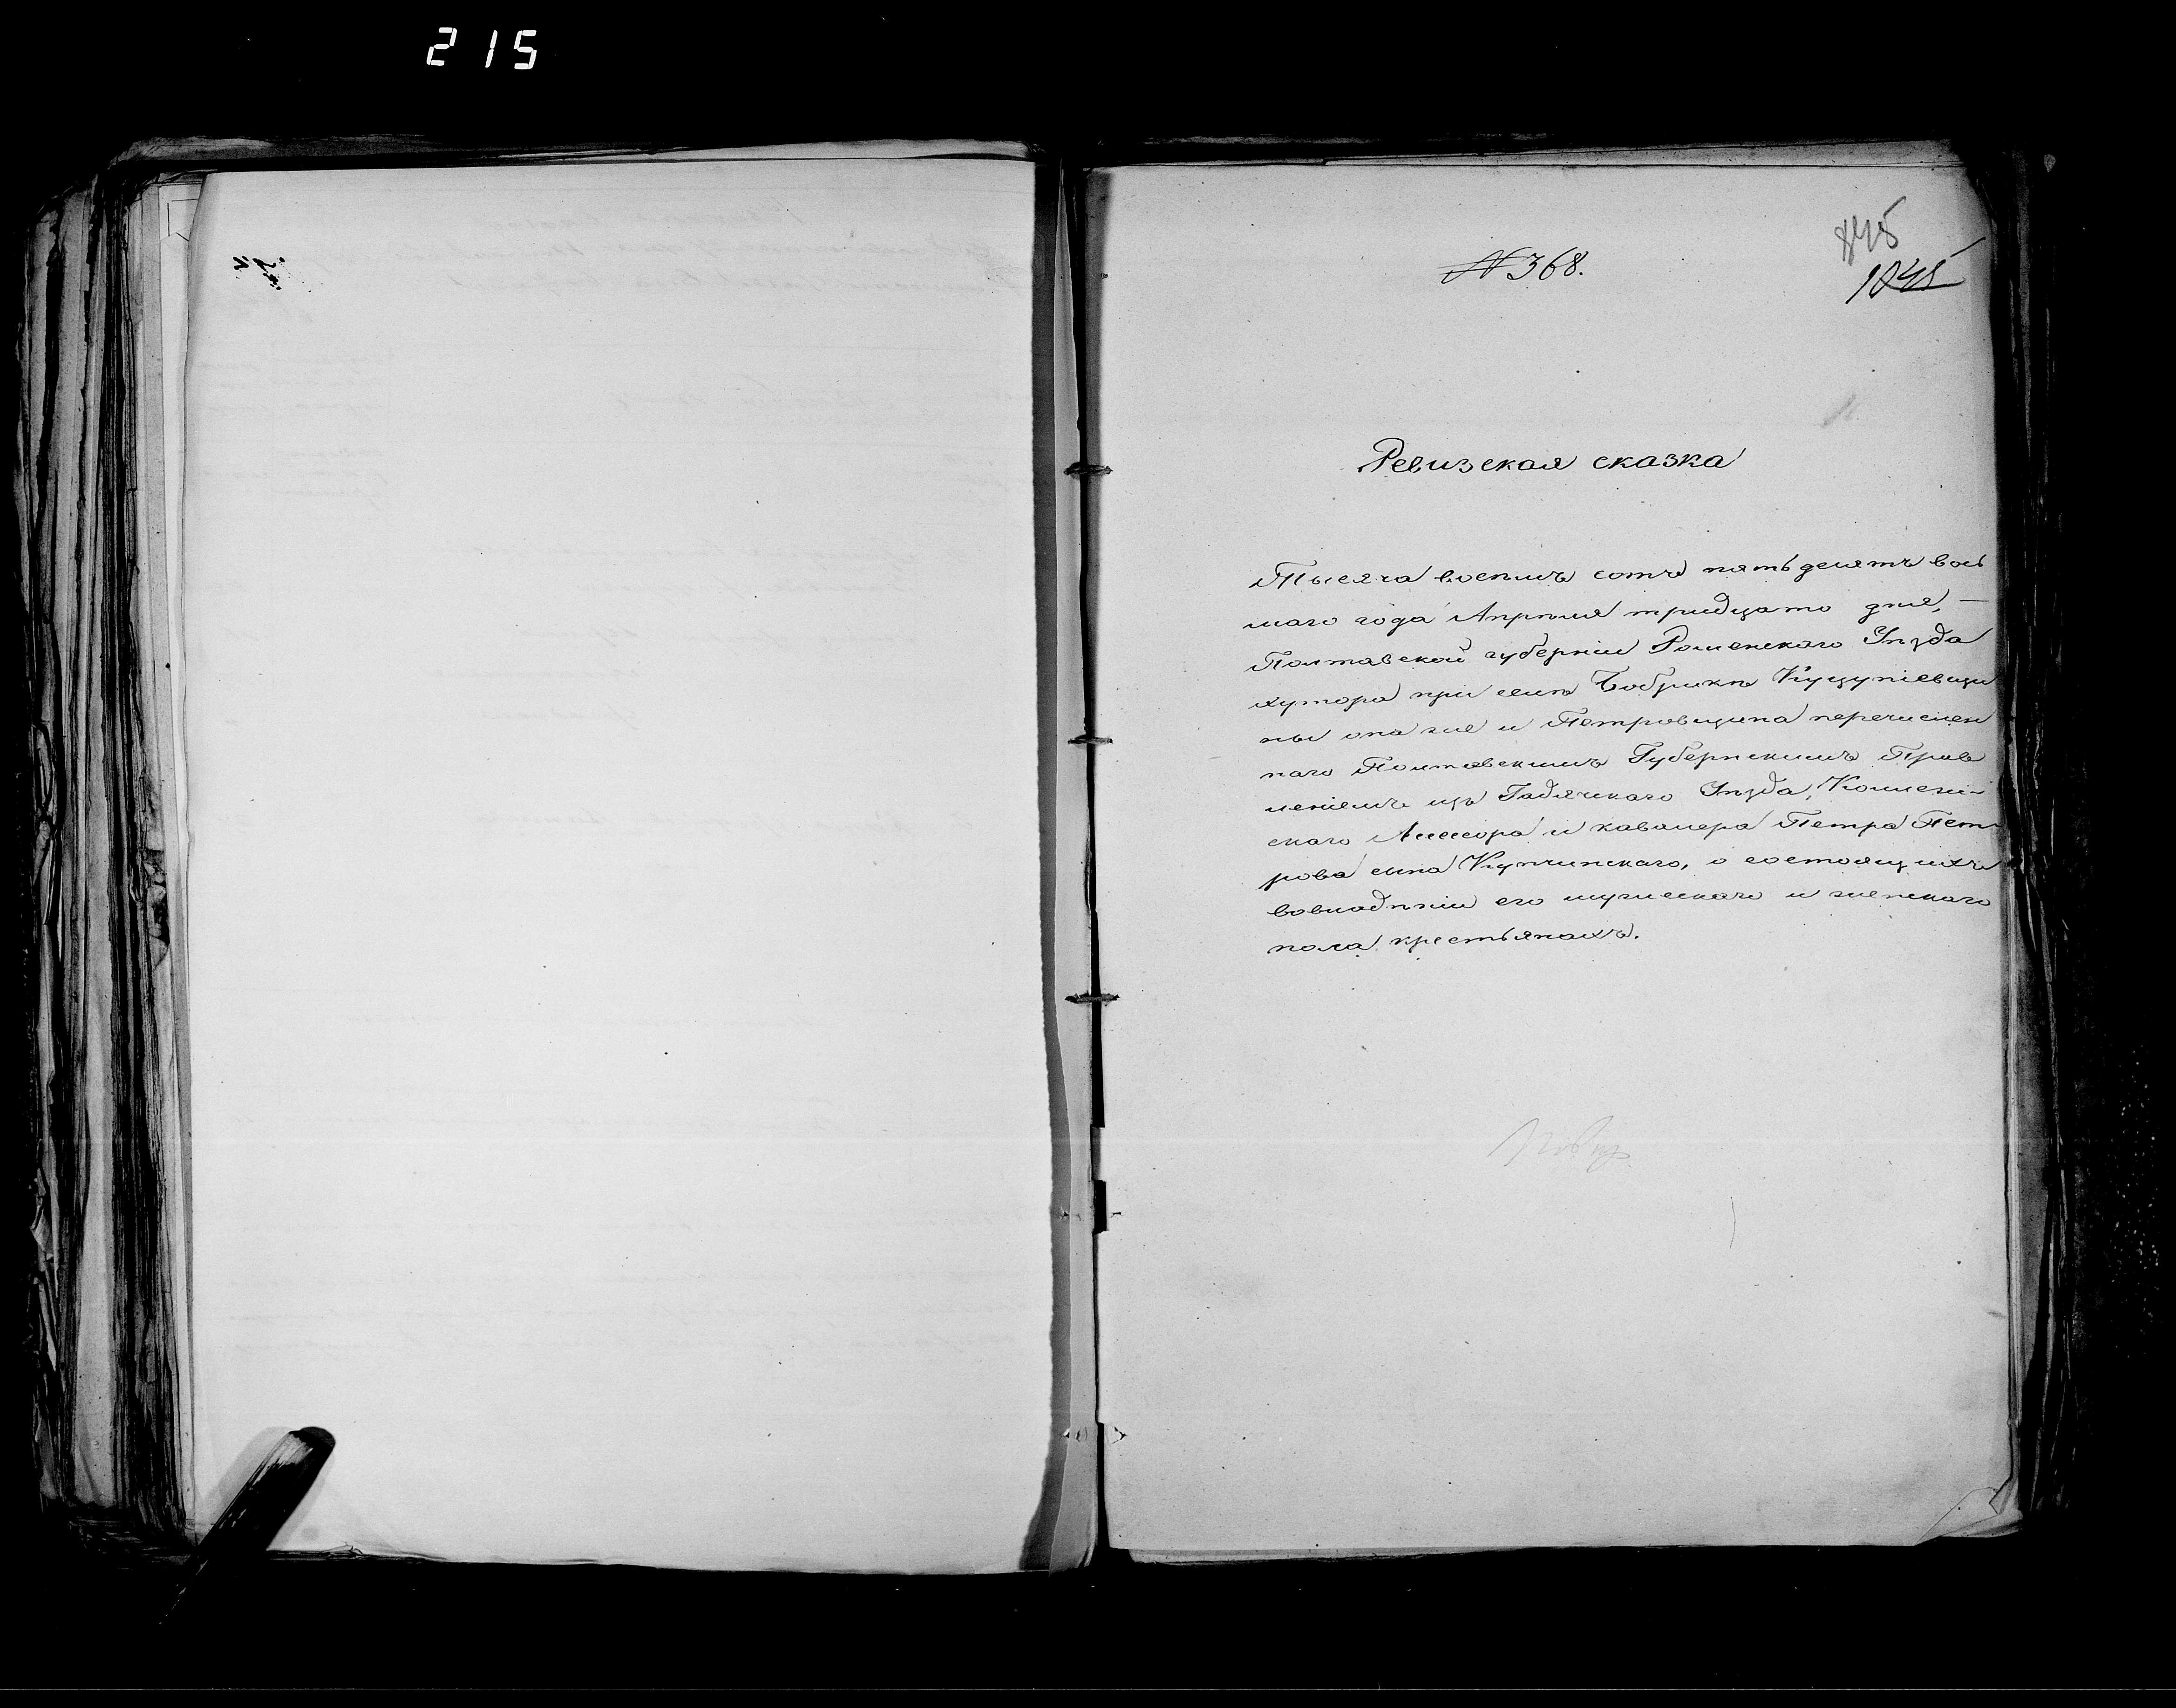 215
№ 368.
845
1045
Ревизская сказка
Тысяча восемь сотъ пятьдесятъ вось
маго года Апрѣля тридцато дня, —
Полтавской губерніи Роменскаго Уѣзда
хутора при селѣ Бобрикѣ
ны она же и Петровщина перечислен
наго Полтавскимъ Губернскимъ Прав
леніемъ изъ Гадячскаго Уѣзда, Коллеж-
скаго Ассесора и кавалера Петра Пет-
рова сына Купчинскаго, о состоящихъ
вовладѣніи его мужескаго и женскаго
пола крестьянахъ.